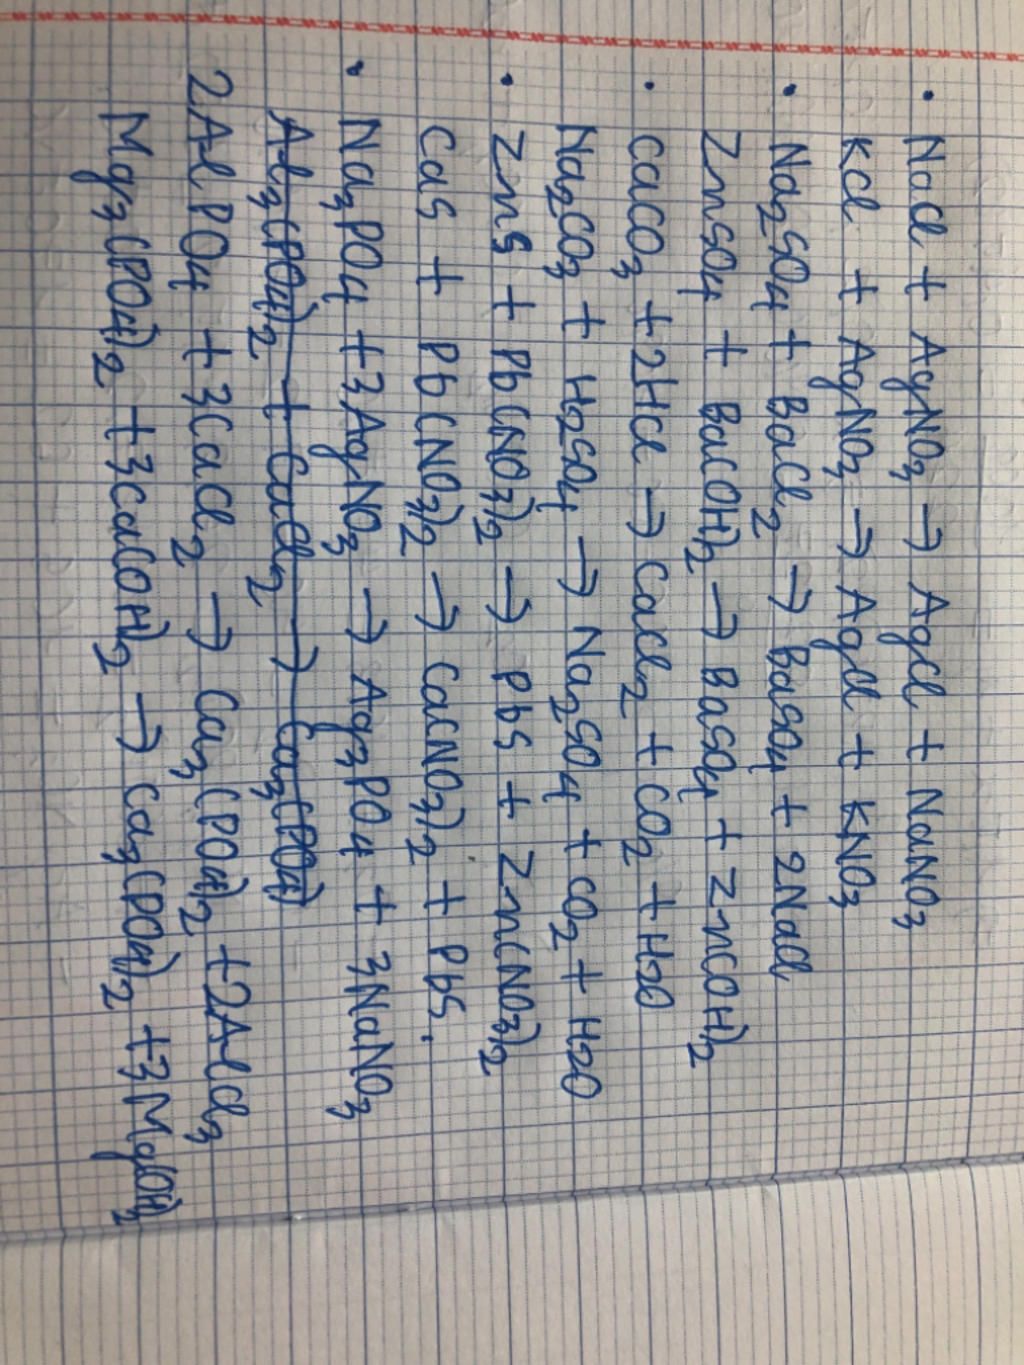 • NaCl + AgNO3 → AgCl + NaNO3
KCl + AgNO3 → AgCl + KNO3
• Na2SO4 + BaCl2 → BaSO4 + 2NaCl
ZnSO4 + Ba(OH)2 → BaSO4 + Zn(OH)2
• CaCO3 + 2HCl → CaCl2 + CO2 + H2O
Na2CO3 + H2SO4 → Na2SO4 + CO2 + H2O
• ZnS + Pb(NO3)2 → PbS + Zn(NO3)2
CaS + Pb(NO3)2 → Ca(NO3)2 + PbS.
• Na3PO4 + 3AgNO3 → Ag3PO4 + 3NaNO3
Al3(PO4)2 + CaCl2 → Ca3(PO4)
2AlPO4 + 3CaCl2 → Ca3(PO4)2 + 2AlCl3
Mg3(PO4)2 + 3Ca(OH)2 → Ca3(PO4)2 + 3Mg(OH)2